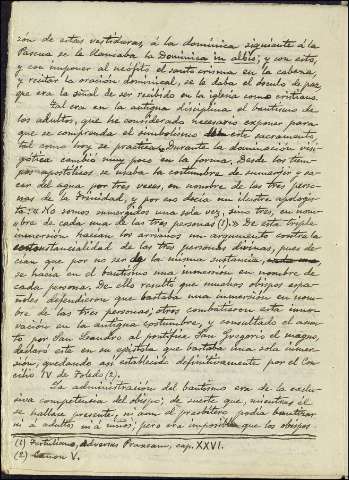 zón de estas vestiduras, á la dominica siguiente á la
Pascua se le llamaba la Dominica in albis; y con esto,
y con imponer al neófito el santo crisma en la cabeza,
y recitar la oración dominical, se le daba el ósculo de paz,
que era la señal de ser recibido en la iglesia como cristiano.
Tal era en la antigua disciplina el bautismo de
los adultos, que he considerado necesario exponer para
que se comprenda el simbolismo de este sacramento,
tal como hoy se practica. Durante la dominación visi-
gótica cambió muy poco en la forma. Desde los tiem-
pos apostólicos se usaba la costumbre de sumergir y sa-
car del agua por tres veces, en nombre de las tres perso-
nas de la Trinidad, y por eso decía un ilustre apologis-
ta: "No somos sumergidos una sola vez, sino tres, en nom-
bre de cada una de las tres personas (1)." De esta triple
inmersión hacían los arrianos un argumento contra la
consustancialidad de las tres personas divinas, pues de-
cían que por no ser de la misma sustancia,
se hacía en el bautismo una inmersión en nombre de
cada persona. De ello resultó que muchos obispos espa-
ñoles defendieron que bastaba una inmersión en nom-
bre de las tres personas; otros combatieron esta inno-
vación en la antigua costumbre, y consultado el asun-
to por San Leandro al pontífice San Gregorio el magno,
declaró este en su epístola que bastaba una sola inmer-
sión, quedando así establecido definitivamente por el Con-
cilio IV de Toledo (2).
La administración del bautismo era de la exclu-
siva competencia del obispo; de suerte que, mientras él
se hallase presente, ni aun el presbítero podía bautizar
ni á adultos ni á niños; pero era imposible que los obispos
(1) Tertuliano, Adversus Praxeam, cap. XXVI.
(2) Canon V.